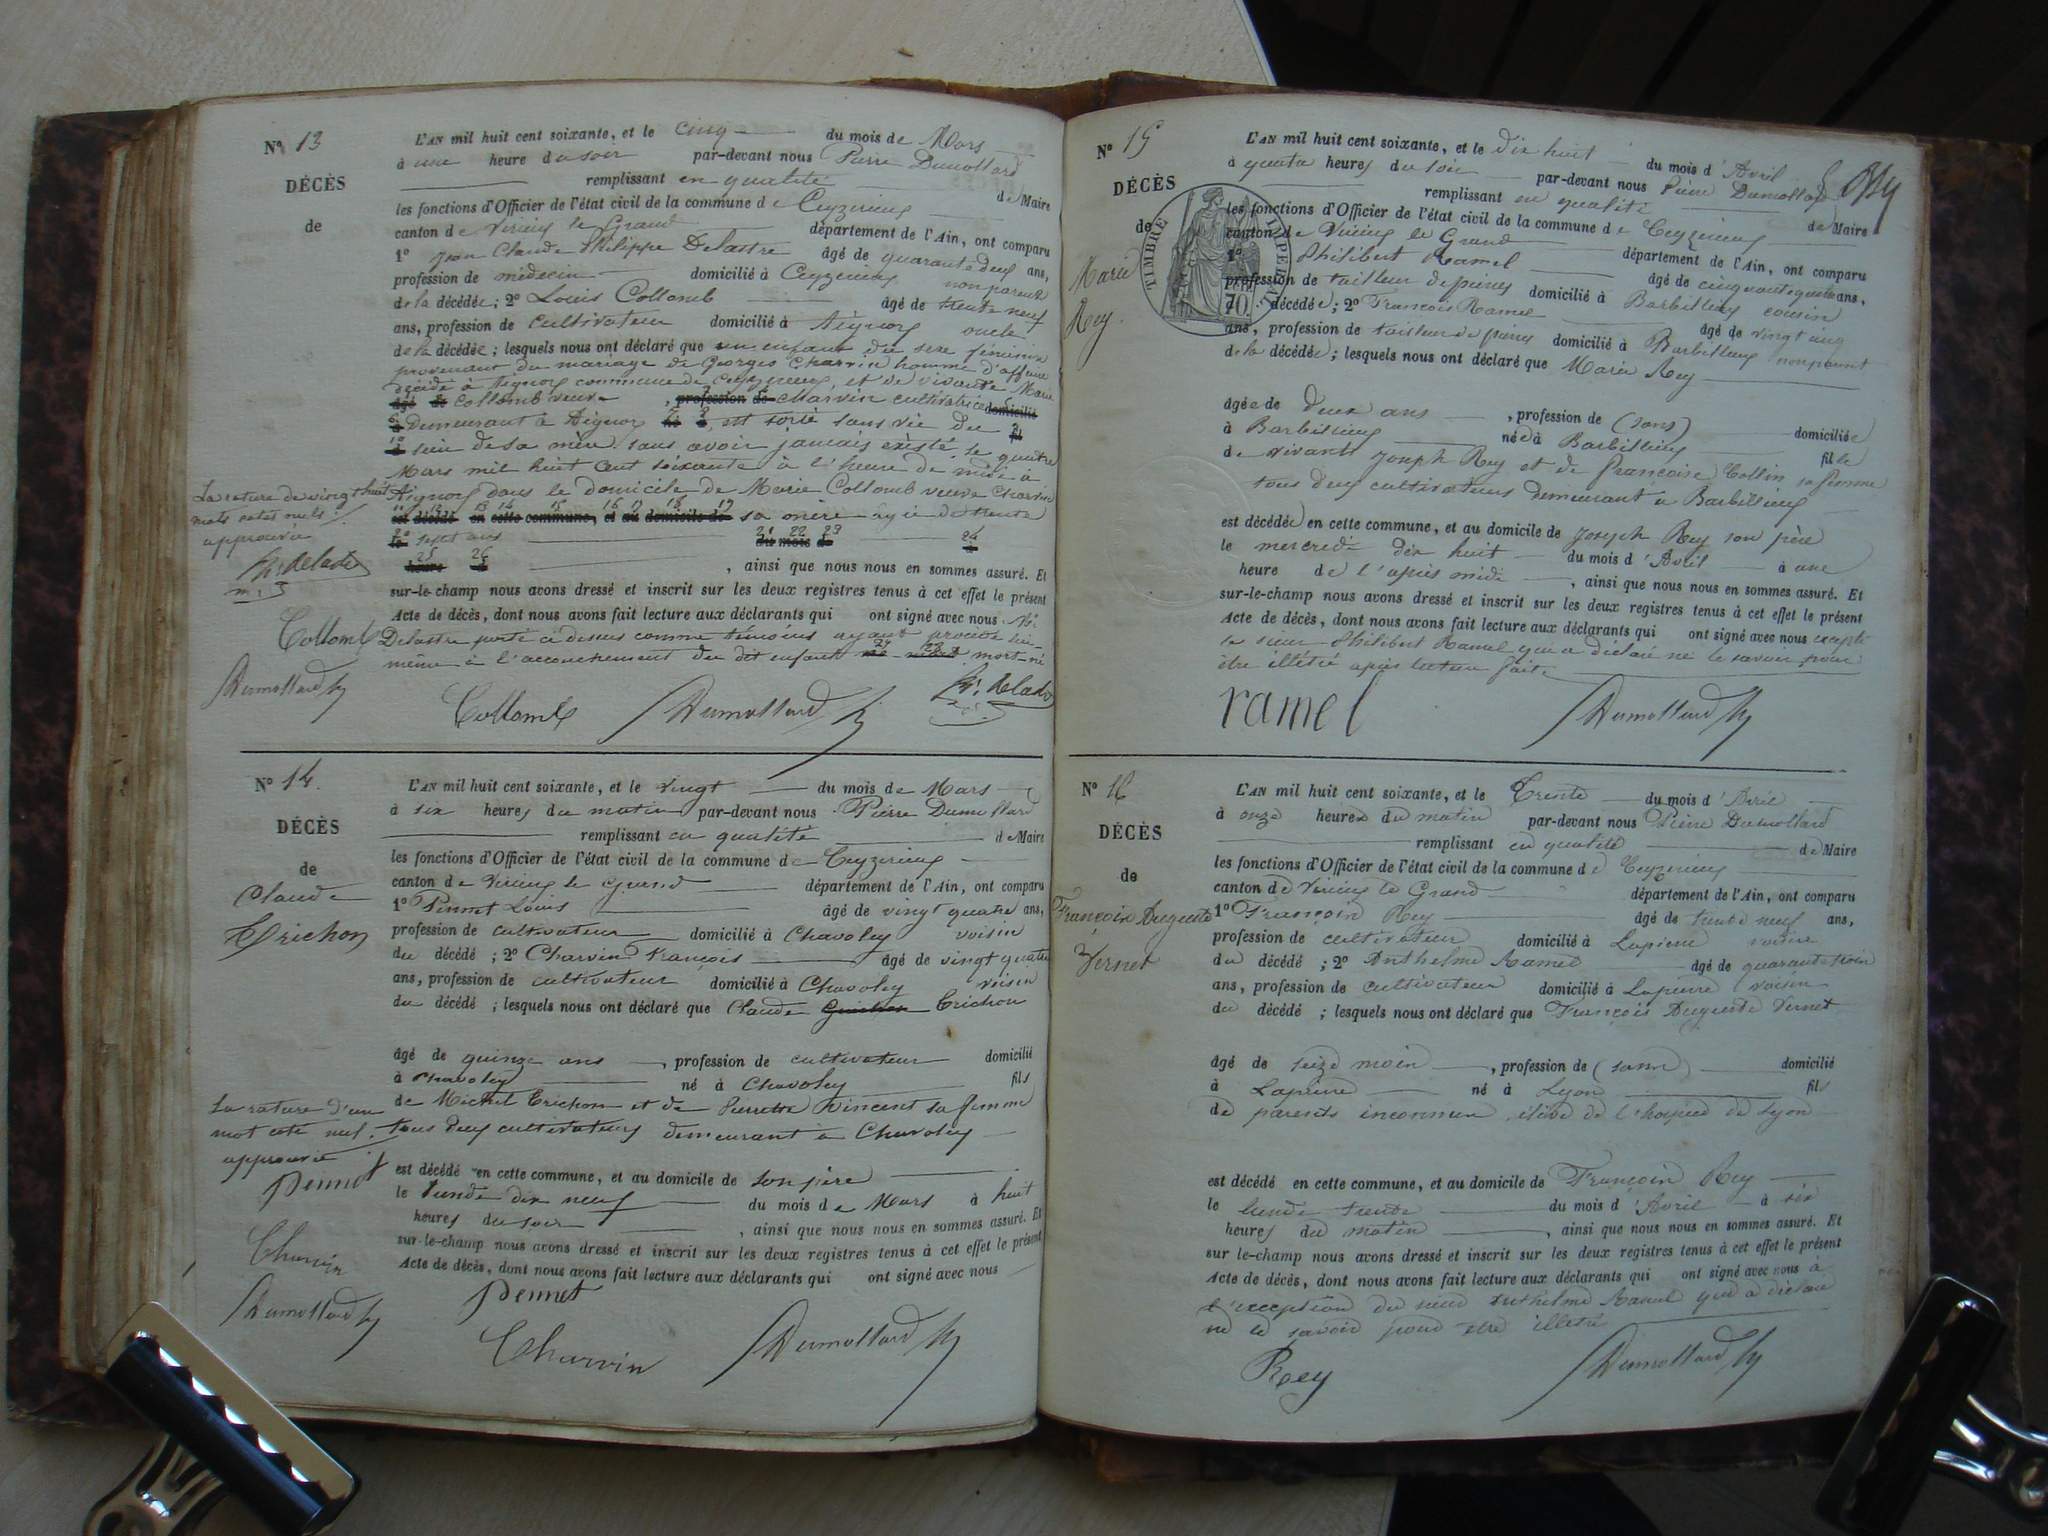 N° 13
DÉCÈS
de
L'AN mil huit cent soixante, et le cinq du mois de Mars
à une heure du soir par-devant nous Pierre Dumollard
remplissant en qualité de Maire
les fonctions d'Officier de l'état civil de la commune de Ceyzerieux
canton de Virieux le Grand département de l'Ain, ont comparu
1° Jean Claude Philippe Delastre âgé de quarante deux ans,
profession de médecin domicilié à Ceyzerieux non parent
de la décédée ; 2° Louis Collomb âgé de trente neuf
ans, profession de cultivateur domicilié à Aignoz oncle
de la décédée ; lesquels nous ont déclaré que un enfant du sexe féminin
provenant du mariage de Georges Charvin homme d'affaire
décédé à Aignoz commune de Ceyzerieux, et de vivante Marie
âgé de Collomb veuve , profession de Charvin cultivatrice domicilié
à demeurant à Aignoz né à, est sorti sans vie du fil
d sein de sa mère sans avoir jamais existé, le quatre
Mars mil huit cent soixante à l'heure de midi à
Aignoz dans le domicile de Marie Collomb veuve Charvin
11 12 13 14 15 16 17 18 19
est décédé en cette commune, et au domicile de sa mère âgée de trente
20 21 22 23 24
le sept ans du mois de à
25 26
heure du , ainsi que nous nous en sommes assuré. Et
sur-le-champ nous avons dressé et inscrit sur les deux registres tenus à cet effet le présent
Acte de décès, dont nous avons fait lecture aux déclarants qui ont signé avec nous. Mr
Delastre porté ci dessus comme témoins ayant procédé lui
même à l'accouchement du dit enfant mort-né
La rature de vingt huit
mots rates nuls
approuvée
Collomb
Dumollard
Collomb Dumollard
N° 14
DÉCÈS
de
Claude
Trichon
L'AN mil huit cent soixante, et le vingt du mois de Mars
à six heures du matin par-devant nous Pierre Dumollard
remplissant en qualité de Maire
les fonctions d'Officier de l'état civil de la commune de Ceyzerieux
canton de Virieux le Grand département de l'Ain, ont comparu
1° Pennet Louis âgé de vingt quatre ans,
profession de cultivateur domicilié à Chavoley voisin
du décédé ; 2° Charvin François âgé de vingt quatre
ans, profession de cultivateur domicilié à Chavoley voisin
du décédé ; lesquels nous ont déclaré que Claude Trichon
âgé de quinze ans , profession de cultivateur domicilié
à Chavoley né à Chavoley fils
de Michel Trichon et de Pierrette Vincent sa femme
tous deux cultivateurs demeurant à Chavoley
est décédé en cette commune, et au domicile de son père
le lundi dix neuf du mois de Mars à huit
heures du soir , ainsi que nous nous en sommes assuré. Et
sur-le-champ nous avons dressé et inscrit sur les deux registres tenus à cet effet le présent
Acte de décès, dont nous avons fait lecture aux déclarants qui ont signé avec nous
La rature d'un
mot coté nul
approuvée
Pennet
Charvin
Dumollard
Pennet
Charvin Dumollard
N° 15
DÉCÈS
de
Marie
Rey
TIMBRE IMPERIAL
70
L'AN mil huit cent soixante, et le dix huit du mois d'Avril
à quatre heures du soir par-devant nous Pierre Dumollard
remplissant en qualité de Maire
les fonctions d'Officier de l'état civil de la commune de Ceyzerieux
canton de Virieux le Grand département de l'Ain, ont comparu
1° Philibert Ramel âgé de cinquante quatre ans,
profession de tailleur de pierres domicilié à Barbillieux cousin
d décédée ; 2° François Ramel âgé de vingt cinq
ans, profession de tailleur de pierres domicilié à Barbillieux non parent
de la décédée ; lesquels nous ont déclaré que Marie Rey
âgée de deux ans , profession de (sans) domiciliée
à Barbillieux née à Barbillieux fille
de vivants Joseph Rey et de Françoise Collin sa femme
tous deux cultivateurs demeurant à Barbillieux
est décédée en cette commune, et au domicile de Joseph Rey son père
le mercredi dix huit du mois d'Avril à une
heure de l'après midi , ainsi que nous nous en sommes assuré. Et
sur-le-champ nous avons dressé et inscrit sur les deux registres tenus à cet effet le présent
Acte de décès, dont nous avons fait lecture aux déclarants qui ont signé avec nous excepté
le sieur Philibert Ramel qui a déclaré ne le savoir pour
être illétré après lecture faite
ramel Dumollard
N° 16
DÉCÈS
de
François Auguste
Vernet
L'AN mil huit cent soixante, et le Trente du mois d'Avril
à onze heures du matin par-devant nous Pierre Dumollard
remplissant en qualité de Maire
les fonctions d'Officier de l'état civil de la commune de Ceyzerieux
canton de Virieux le Grand département de l'Ain, ont comparu
1° François Rey âgé de trente neuf ans,
profession de cultivateur domicilié à Lapierre voisin
du décédé ; 2° Anthelme Ramel âgé de quarante trois
ans, profession de cultivateur domicilié à Lapierre voisin
du décédé ; lesquels nous ont déclaré que François Auguste Vernet
âgé de seize mois , profession de (sans) domicilié
à Lapierre né à Lyon fils
de parents inconnus élève de l'hospice de Lyon
est décédé en cette commune, et au domicile de François Rey
le lundi trente du mois d'Avril à six
heures du matin , ainsi que nous nous en sommes assuré. Et
sur le-champ nous avons dressé et inscrit sur les deux registres tenus à cet effet le présent
Acte de décès, dont nous avons fait lecture aux déclarants qui ont signé avec nous à
l'exception du sieur Anthelme Ramel qui a déclaré
ne le savoir pour être illetré
Rey Dumollard